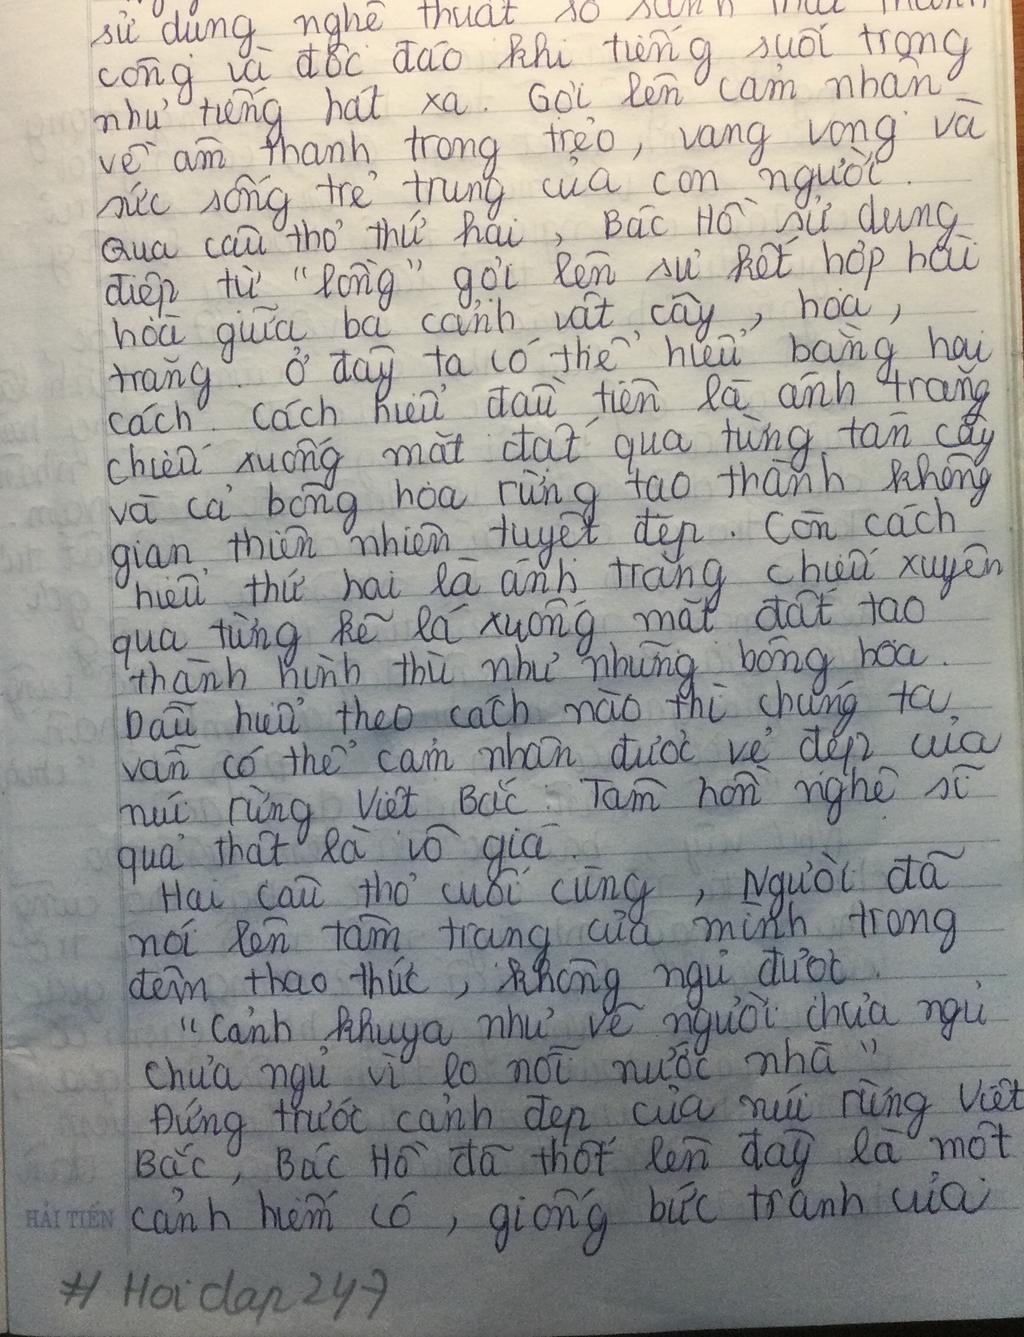 sử dụng nghệ thuật so sánh thật thành
công và độc đáo khi tiếng suối trong
như tiếng hát xa. Gợi lên cảm nhận
về âm thanh trong trẻo, vang vọng và
sức sống trẻ trung của con người.
Qua câu thơ thứ hai, Bác Hồ sử dụng
điệp từ "lồng" gợi lên sự kết hợp hài
hòa giữa ba cảnh vật cây, hoa,
trăng. Ở đây ta có thể hiểu bằng hai
cách. Cách hiểu đầu tiên là ánh trăng
chiếu xuống mặt đất qua từng tán cây
và cả bông hoa rừng tạo thành không
gian thiên nhiên tuyệt đẹp. Còn cách
hiểu thứ hai là ánh trăng chiếu xuyên
qua từng kẽ lá xuống mặt đất tạo
thành hình thù như những bông hoa.
Dẫu hiểu theo cách nào thì chúng ta
vẫn có thể cảm nhận được vẻ đẹp của
núi rừng Việt Bắc. Tâm hồn nghệ sĩ
quả thật là vô giá.
Hai câu thơ cuối cùng, Người đã
nói lên tâm trạng của mình trong
đêm thao thức, không ngủ được.
"Cảnh khuya như vẽ người chưa ngủ
Chưa ngủ vì lo nỗi nước nhà"
Đứng trước cảnh đẹp của núi rừng Việt
Bắc, Bác Hồ đã thốt lên đây là một
cảnh hiếm có, giống bức tranh của
HẢI TIẾN
# Hoidap247